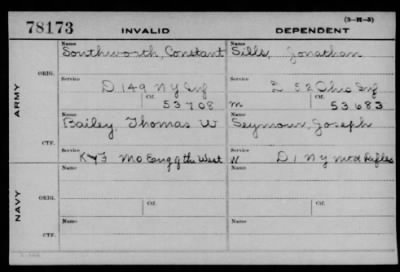 78173 INVALID DEPENDENT (3-21-5)
Name Name
Southworth, Constant Sills, Jonathan
ORIG.
Service Service
D 149 N Y Inf E 52 Ohio Inf
Ctf. Ctf.
53708 m 53683
ARMY
Name Name
Bailey, Thomas W Seymour, Joseph
CTF.
Service Service
K & F Mo Eng of the West W D 1 N Y Mtd Rifles
Name Name
ORIG.
Service Ctf. Service Ctf.
NAVY
Name Name
CTF.
Service Service